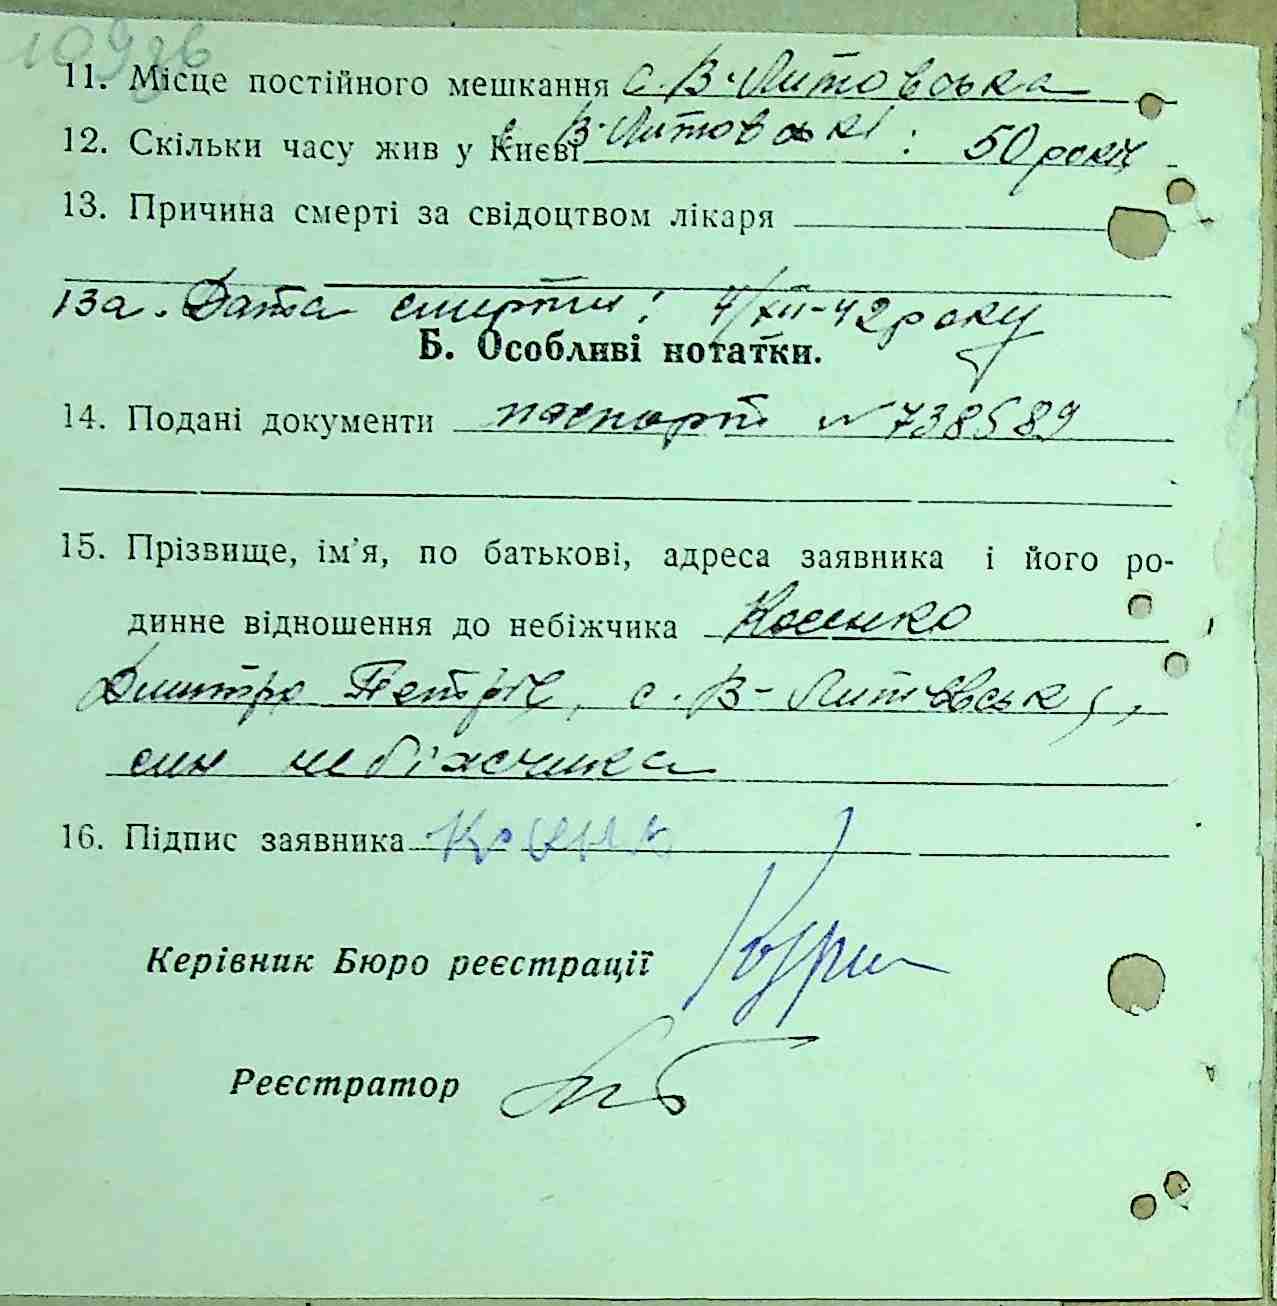 109зв
11. Місце постійного мешкання с. В-Литовська
12. Скільки часу жив у Києві В-Литовські: 50 років
13. Причина смерті за свідоцтвом лікаря
13а. Дата смерти: 4/XII-42 року
Б. Особливі нотатки.
14. Подані документи паспорт № 738589
15. Прізвище, ім'я, по батькові, адреса заявника і його ро-
динне відношення до небіжчика Косенко
Дмитро Петрів, с. В-Литовська,
син небіжчика
16. Підпис заявника
Керівник Бюро реєстрації
Реєстратор